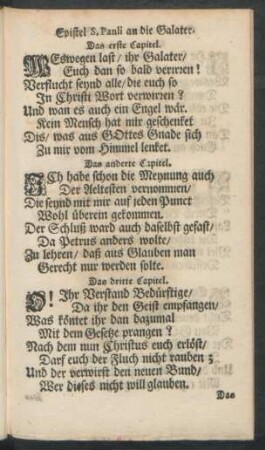 Epistel S. Pauli an die Galater.
Das erste Capitel.
WEswegen last / ihr Galater /
Euch dan so bald verirren!
Verflucht seynd alle / die euch so
In Christi Wort verwirren?
Und wan es auch ein Engel wär.
Kein Mensch hat mir geschenket
Dis / was aus GOttes Gnade sich
Zu mir vom Himmel lenket.
Das anderte Capitel.
ICh habe schon die Meynung auch
Der Aeltesten vernommen /
Die seynd mit mir auf jeden Punct
Wohl überein gekommen.
Der Schluß ward auch daselbst gefast /
Da Petrus anders wolte /
Zu lehren / daß aus Glauben man
Gerecht nur werden solte.
Das dritte Capitel.
O! Ihr Verstand Bedürftige /
Da ihr den Geist empfangen /
Was köntet ihr dan dazumal
Mit dem Gesetze prangen?
Nach dem nun Christus euch erlöst /
Darf euch der Fluch nicht rauben;
Und der verwirft den neuen Bund /
Wer dieses nicht will glauben.
Das